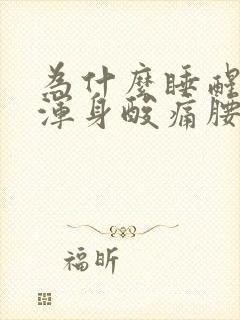 為什麼睡醒
渾身酸痛腰
福昕